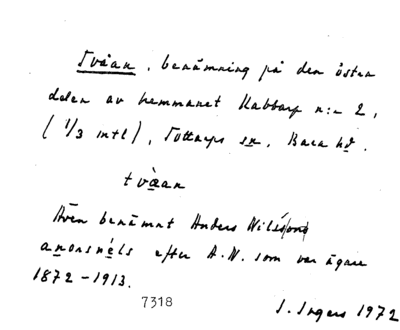 Tvåan, benämning på den östra
delen av hemmanet Kabbarp n:r 2,
(1/3 mtl), Tottarps sn, Bara hd.
tvåan
Även benämnt Anders Nilssons
anorsnéls efter A.N. som var ägare
1872-1913.
7318
I. Ingers 1972